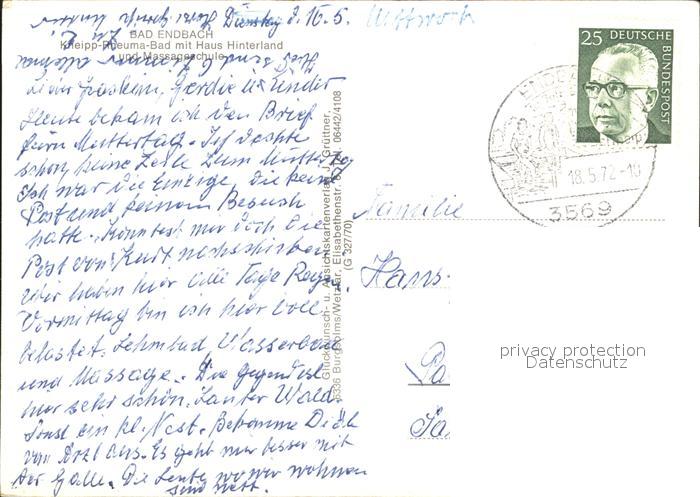 Dienstag d. 16.5. Mittwoch
BAD ENDBACH
Kneipp-Rheuma-Bad mit Haus Hinterland
und Massageschule
Heute bekam ich den Brief
zum Muttertag. Ich dachte
schon keine Zeile zum Muttertag
Ich war die Einzige, die keine
Post und keinen Besuch
hatte. Könntest mir doch die
Post von Kurt nachschicken
Wir haben hier alle Tage Regen.
Vormittag bin ich hier voll
belastet. Lehmbad, Wasserbad
und Massage. Die Gegend ist
hier sehr schön. Lauter Wald.
Sonst ein kl. Nest. Bekomme Diät
vom Arzt aus. Es geht mir besser mit
der Galle. Die Leute, wo wir wohnen
sind nett.
Glückwunsch- u. Ansichtskartenverlag J. Grüttner,
6336 Burgsolms/Wetzlar, Elisabethenstr. 06442/4108
(G 327/70)
25 DEUTSCHE BUNDESPOST
18.5.72-10
3569
Familie
Hans
privacy protection
Datenschutz